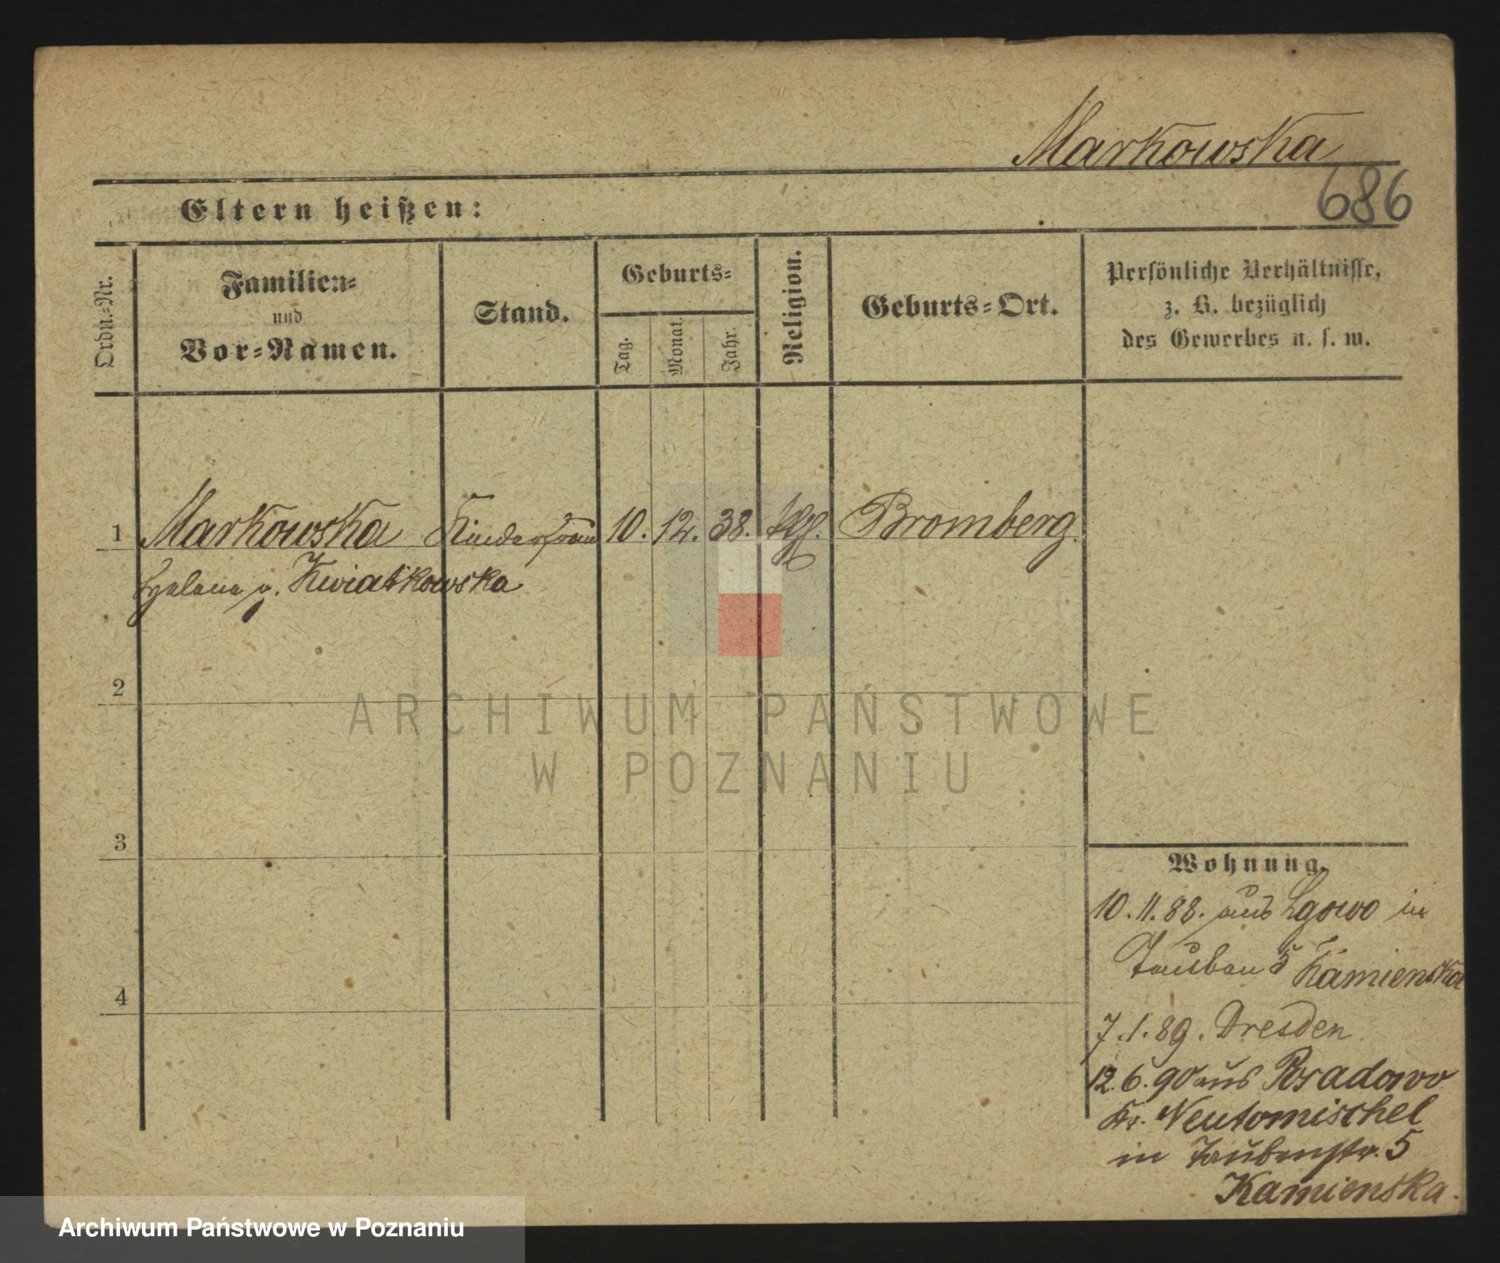 Markowska
686
Eltern heißen:
Ordn.-Nr.
Familien-
und
Vor-Namen.
Stand.
Geburts-
Tag.
Monat.
Jahr.
Religion.
Geburts-Ort.
Persönliche Verhältnisse,
z. B. bezüglich
des Gewerbes u. s. w.
1 Markowska Kinderfrau 10. 12. 38. kath. Bromberg
Helene g. Kwiatkowska
2
3
4
ARCHIWUM PAŃSTWOWE
W POZNANIU
Wohnung.
10.11.88. aus Lgowo in
Tauben 5 Kamienska
7.1.89. Dresden
12.6.90 aus Posadowo
Kr. Neutomischel
in Taubenstr. 5
Kamienska.
Archiwum Państwowe w Poznaniu